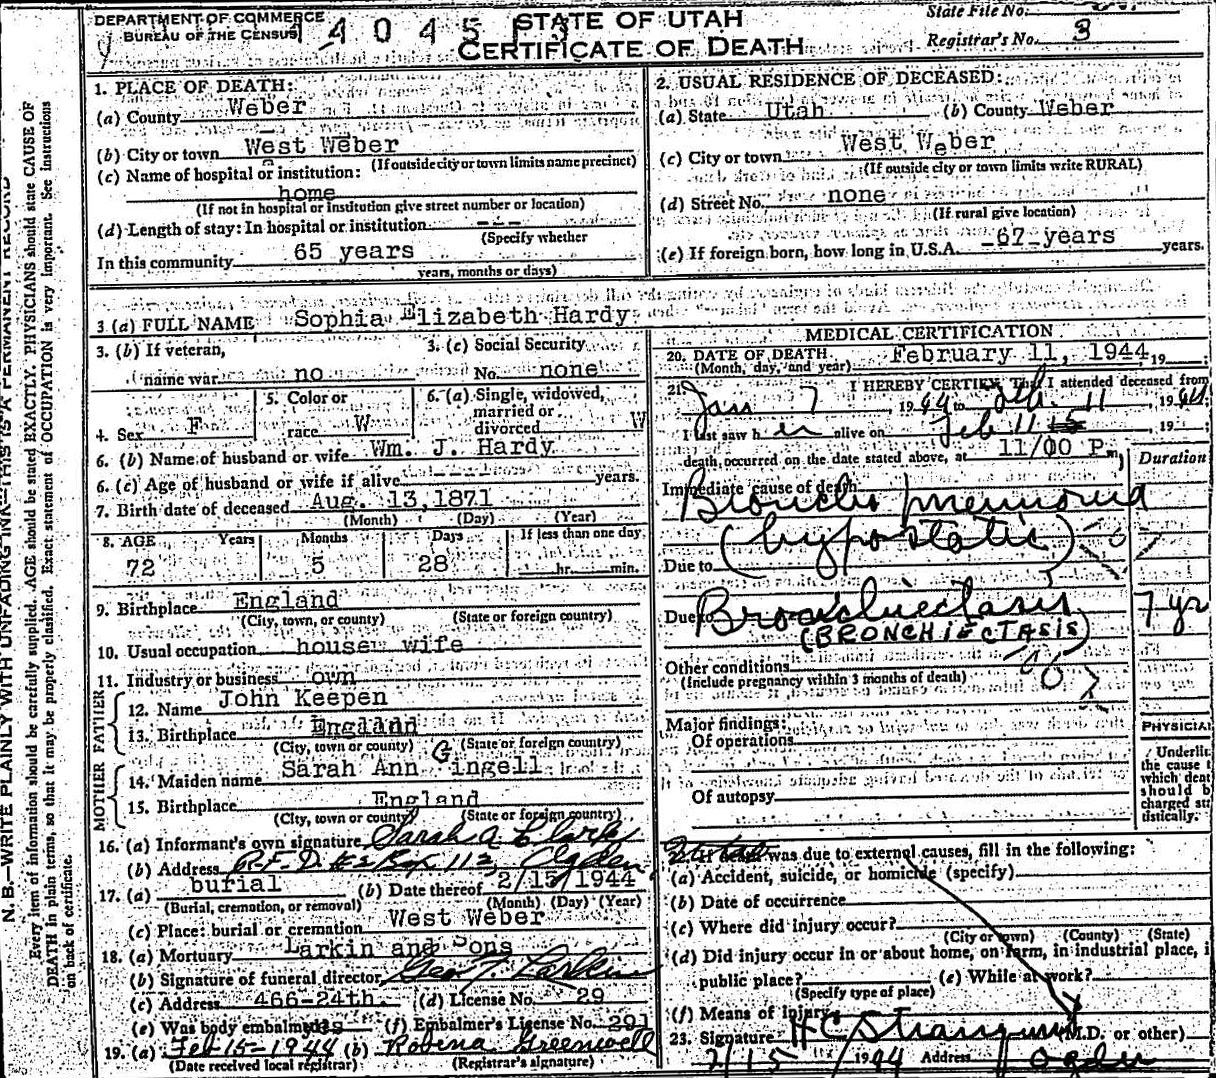 DEPARTMENT OF COMMERCE
BUREAU OF THE CENSUS
STATE OF UTAH
CERTIFICATE OF DEATH
State File No.
Registrar's No. 3
N. B.—WRITE PLAINLY WITH UNFADING INK—THIS IS A PERMANENT RECORD
Every item of information should be carefully supplied. AGE should be stated EXACTLY. PHYSICIANS should state CAUSE OF
DEATH in plain terms, so that it may be properly classified. Exact statement of OCCUPATION is very important. See instructions
on back of certificate.
1. PLACE OF DEATH:
(a) County Weber
(b) City or town West Weber
(If outside city or town limits name precinct)
(c) Name of hospital or institution:
home
(If not in hospital or institution give street number or location)
(d) Length of stay: In hospital or institution ---
(Specify whether
In this community 65 years
years, months or days)
2. USUAL RESIDENCE OF DECEASED:
(a) State Utah (b) County Weber
(c) City or town West Weber
(If outside city or town limits write RURAL)
(d) Street No. none
(If rural give location)
(e) If foreign born, how long in U.S.A. 67 years years.
3. (a) FULL NAME Sophia Elizabeth Hardy
3. (b) If veteran,
name war no
3. (c) Social Security
No. none
4. Sex F
5. Color or
race W
6. (a) Single, widowed,
married or
divorced W
6. (b) Name of husband or wife Wm. J. Hardy
6. (c) Age of husband or wife if alive years.
7. Birth date of deceased Aug. 13,1871
(Month) (Day) (Year)
8. AGE Years Months Days If less than one day
72 5 28 hr. min.
9. Birthplace England
(City, town, or county) (State or foreign country)
10. Usual occupation house wife
11. Industry or business own
FATHER
12. Name John Keepen
13. Birthplace England
(City, town or county) (State or foreign country)
MOTHER
14. Maiden name Sarah Ann Gingell
15. Birthplace England
(City, town or county) (State or foreign country)
16. (a) Informant's own signature Sarah A. Clark
(b) Address R.F.D. #2 Box 112, Ogden
17. (a) burial (b) Date thereof 2/15/1944
(Burial, cremation, or removal) (Month) (Day) (Year)
(c) Place: burial or cremation West Weber
18. (a) Mortuary Larkin and Sons
(b) Signature of funeral director Geo. T. Larkin
(c) Address 466-24th. (d) License No. 29
(e) Was body embalmed yes (f) Embalmer's License No. 291
19. (a) Feb-15-1944 (b) Rovena Greenwell
(Date received local registrar) (Registrar's signature)
MEDICAL CERTIFICATION
20. DATE OF DEATH February 11, 1944, 19
(Month, day, and year)
21. I HEREBY CERTIFY, That I attended deceased from
Jan 7 1944 to Feb. 11, 1944;
I last saw her alive on Feb 11, 19
death occurred on the date stated above, at 11/00 P m, Duration
Immediate cause of death
Broncho pneumonia
(hypostatic)
Due to
Due to Bronchiectasis 7 yr
(BRONCHIECTASIS)
Other conditions
(Include pregnancy within 3 months of death)
Major findings:
Of operations
Of autopsy
PHYSICIAN
Underline
the cause t
which deat
should b
charged sta
tistically.
22. If death was due to external causes, fill in the following:
(a) Accident, suicide, or homicide (specify)
(b) Date of occurrence
(c) Where did injury occur?
(City or town) (County) (State)
(d) Did injury occur in or about home, on farm, in industrial place, i
public place? (e) While at work?
(Specify type of place)
(f) Means of injury
23. Signature H C Stranquist (M.D. or other)
2/15/1944 Address Ogden